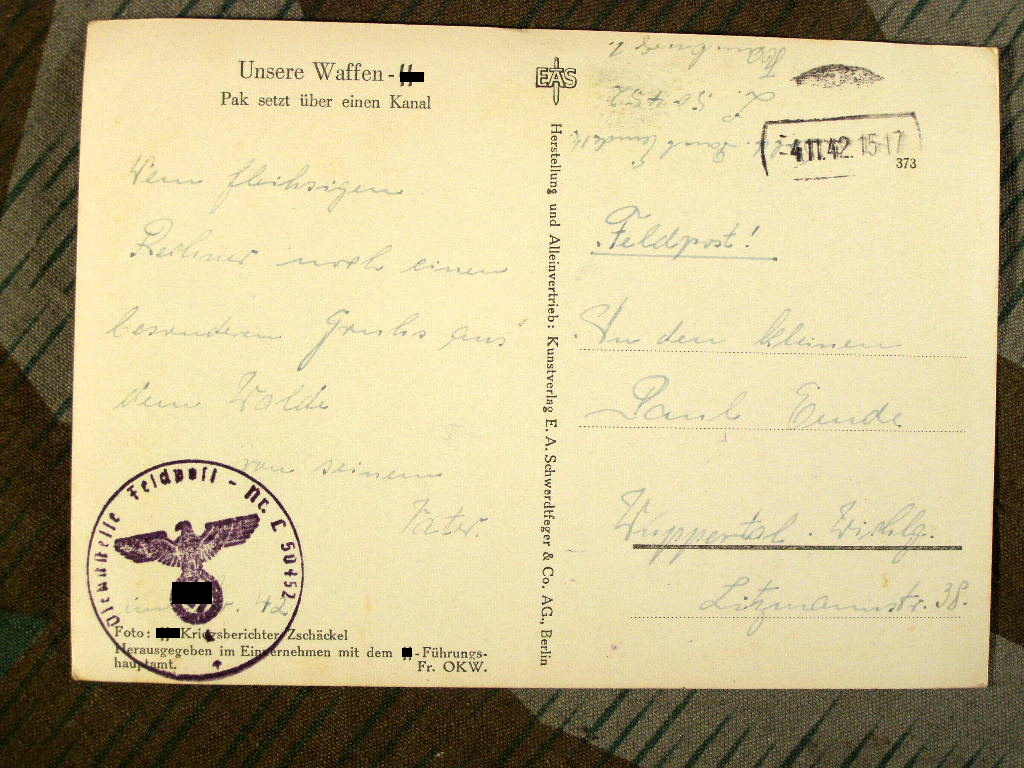 Unsere Waffen-
Pak setzt über einen Kanal
Dem fleihsigen
Rechner noch einen
besonderen Gruhs aus
dem Walde
von seinem
Vater.
42
Dienststelle Feldpost - Nr. L 50452
Foto: Kriegsberichter Zschäckel
Herausgegeben im Einvernehmen mit dem -Führungs-
hauptamt. Fr. OKW.
EAS
Herstellung und Alleinvertrieb: Kunstverlag E. A. Schwerdtfeger & Co. AG., Berlin
L. 50452
Hamburg 1.
-4.11.42. 15-17
373
Feldpost!
An den kleinen
Paul Emde
Wuppertal.
Litzmannstr. 38.